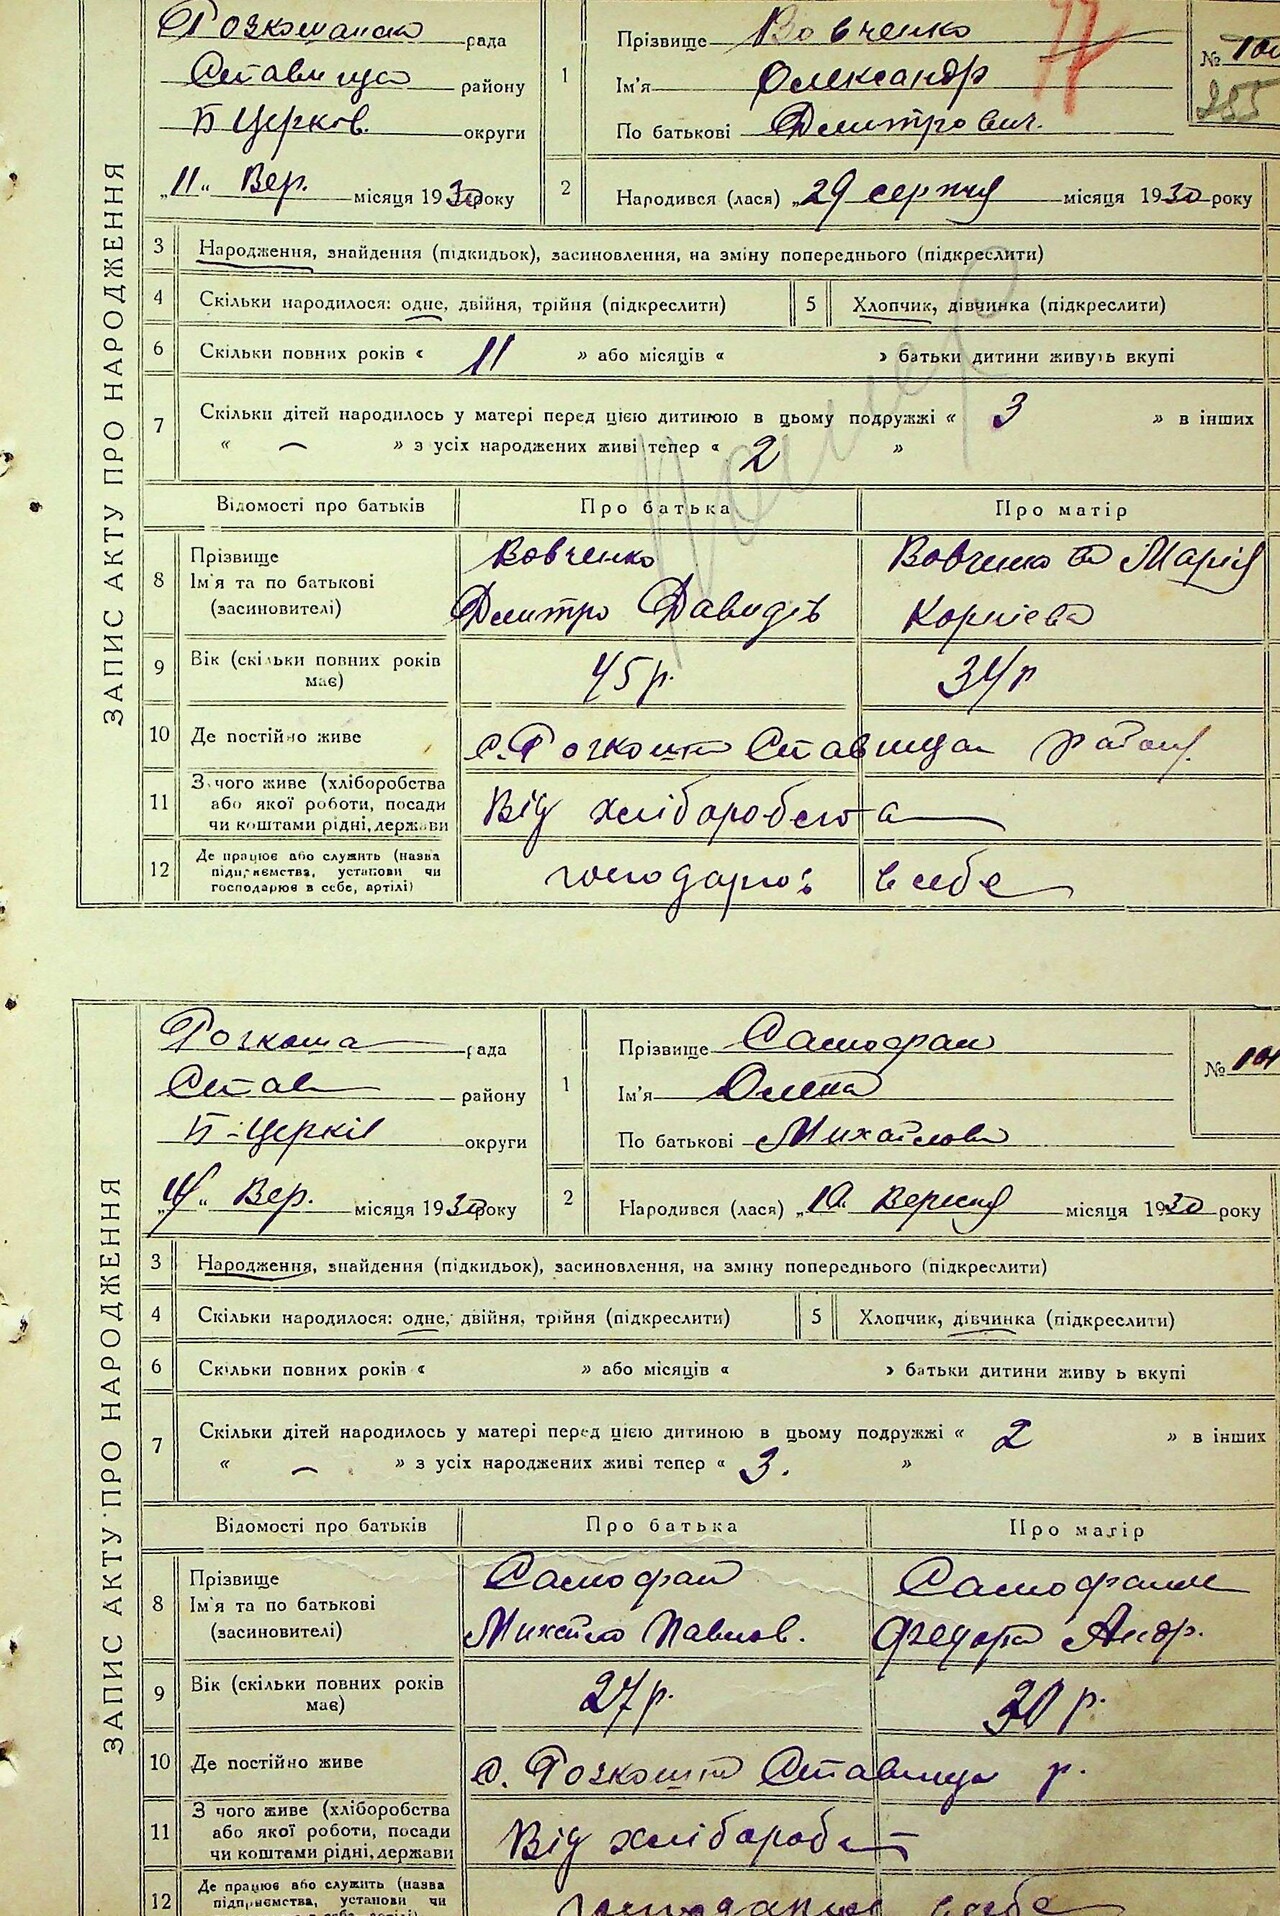 ЗАПИС АКТУ ПРО НАРОДЖЕННЯ
Розкошанска рада
Ставища району
Б Церков. округи
„11„ Вер. місяця 1930 року
1 Прізвище Вовченко
Ім'я Олександр
По батькові Дмитрович.
№ 100
255
2 Народився (лася) „29 серпня місяця 1930 року
3 Народження, знайдення (підкидьок), засиновлення, на зміну попереднього (підкреслити)
4 Скільки народилося: одне, двійня, трійня (підкреслити) 5 Хлопчик, дівчинка (підкреслити)
6 Скільки повних років « 11 » або місяців « » батьки дитини живуть вкупі
7 Скільки дітей народилось у матері перед цією дитиною в цьому подружжі « 3 » в інших
« — » з усіх народжених живі тепер « 2 »
Помер
Відомості про батьків Про батька Про матір
8 Прізвище Вовченко Вовченко Марія
Ім'я та по батькові
(засиновителі) Дмитро Давидів Корнієва
9 Вік (скільки повних років 45 р. 34 р
має)
10 Де постійно живе с. Розкошна Ставищан району
11 З чого живе (хліборобства
або якої роботи, посади Від хліборобства
чи коштами рідні, держави
12 Де працює або служить (назва
підприємства, установи чи господарює в себе
господарює в себе, артілі)
ЗАПИС АКТУ ПРО НАРОДЖЕННЯ
Розкоша рада
Став району
Б-Церків округи
місяця 1930 року
1 Прізвище Самофал
Ім'я Олена
По батькові Михайлова
№ 101
2 Народився (лася) „10„ Вересня місяця 1930 року
3 Народження, знайдення (підкидьок), засиновлення, на зміну попереднього (підкреслити)
4 Скільки народилося: одне, двійня, трійня (підкреслити) 5 Хлопчик, дівчинка (підкреслити)
6 Скільки повних років « » або місяців « » батьки дитини живу ь вкупі
7 Скільки дітей народилось у матері перед цією дитиною в цьому подружжі « 2 » в інших
« — » з усіх народжених живі тепер « 3. »
Відомості про батьків Про батька Про матір
8 Прізвище Самофал
Ім'я та по батькові
(засиновителі) Михайло Павлов. Федора Андр.
9 Вік (скільки повних років 27 р. 30 р.
має)
10 Де постійно живе с. Розкошна Ставищан р.
11 З чого живе (хліборобства
або якої роботи, посади Від хліборобст
чи коштами рідні, держави
12 Де працює або служить (назва
підприємства, установи чи господарює в себе